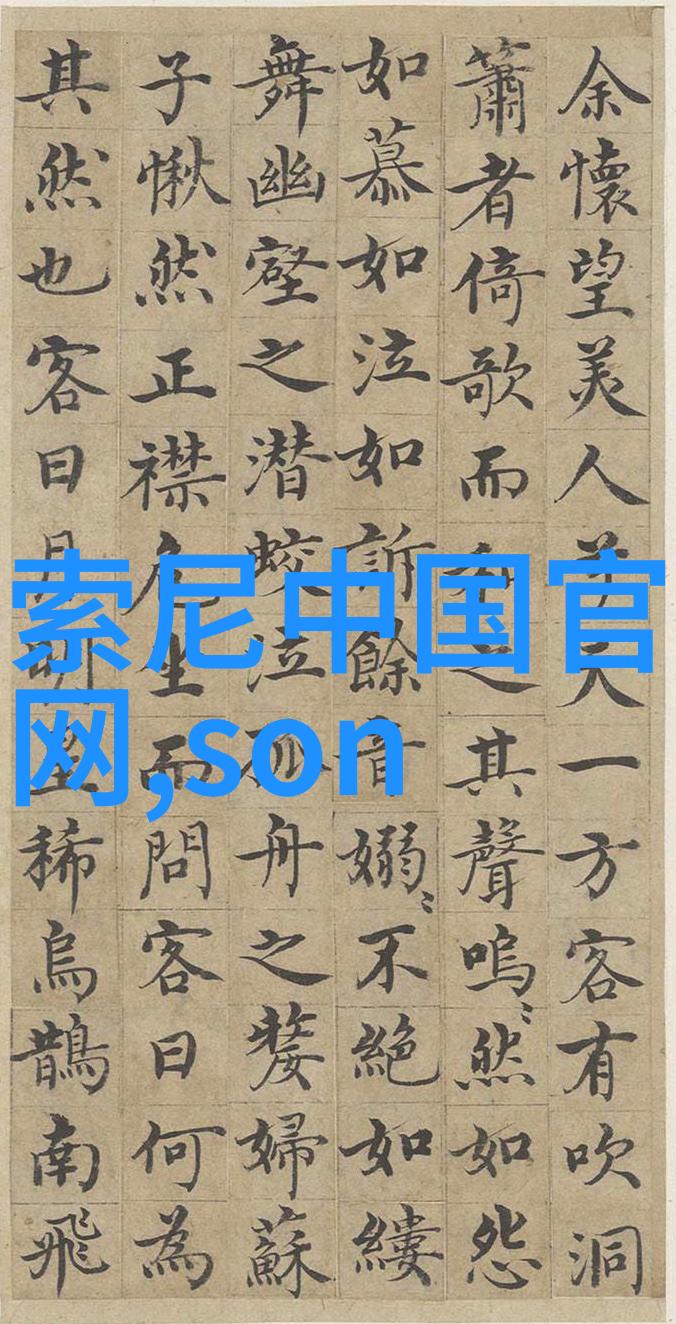 余懷望美人兮天一方客有吹洞
簫者倚歌而和之其聲嗚〻然如怨
如慕如泣如訴餘音嫋〻不絶如縷
舞幽壑之潜蛟泣孤舟之嫠婦蘇
子愀然正襟危坐而問客曰何為
其然也客曰月明星稀烏鵲南飛
索尼中国官
网,son